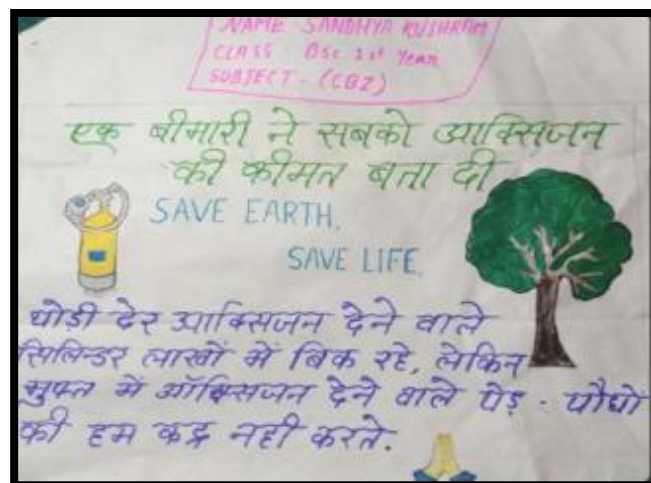 NAME - SANDHYA KUSHRAM
CLASS - BSc 1st Year
SUBJECT - (CBZ)
एक बीमारी ने सबको आक्सिजन
की कीमत बता दी
SAVE EARTH,
SAVE LIFE,
थोड़ी देर आक्सिजन देने वाले
सिलिन्डर लाखों में बिक रहे, लेकिन
मुफ्त में ऑक्सिजन देने वाले पेड़ - पौधों
की हम कद्र नही करते.